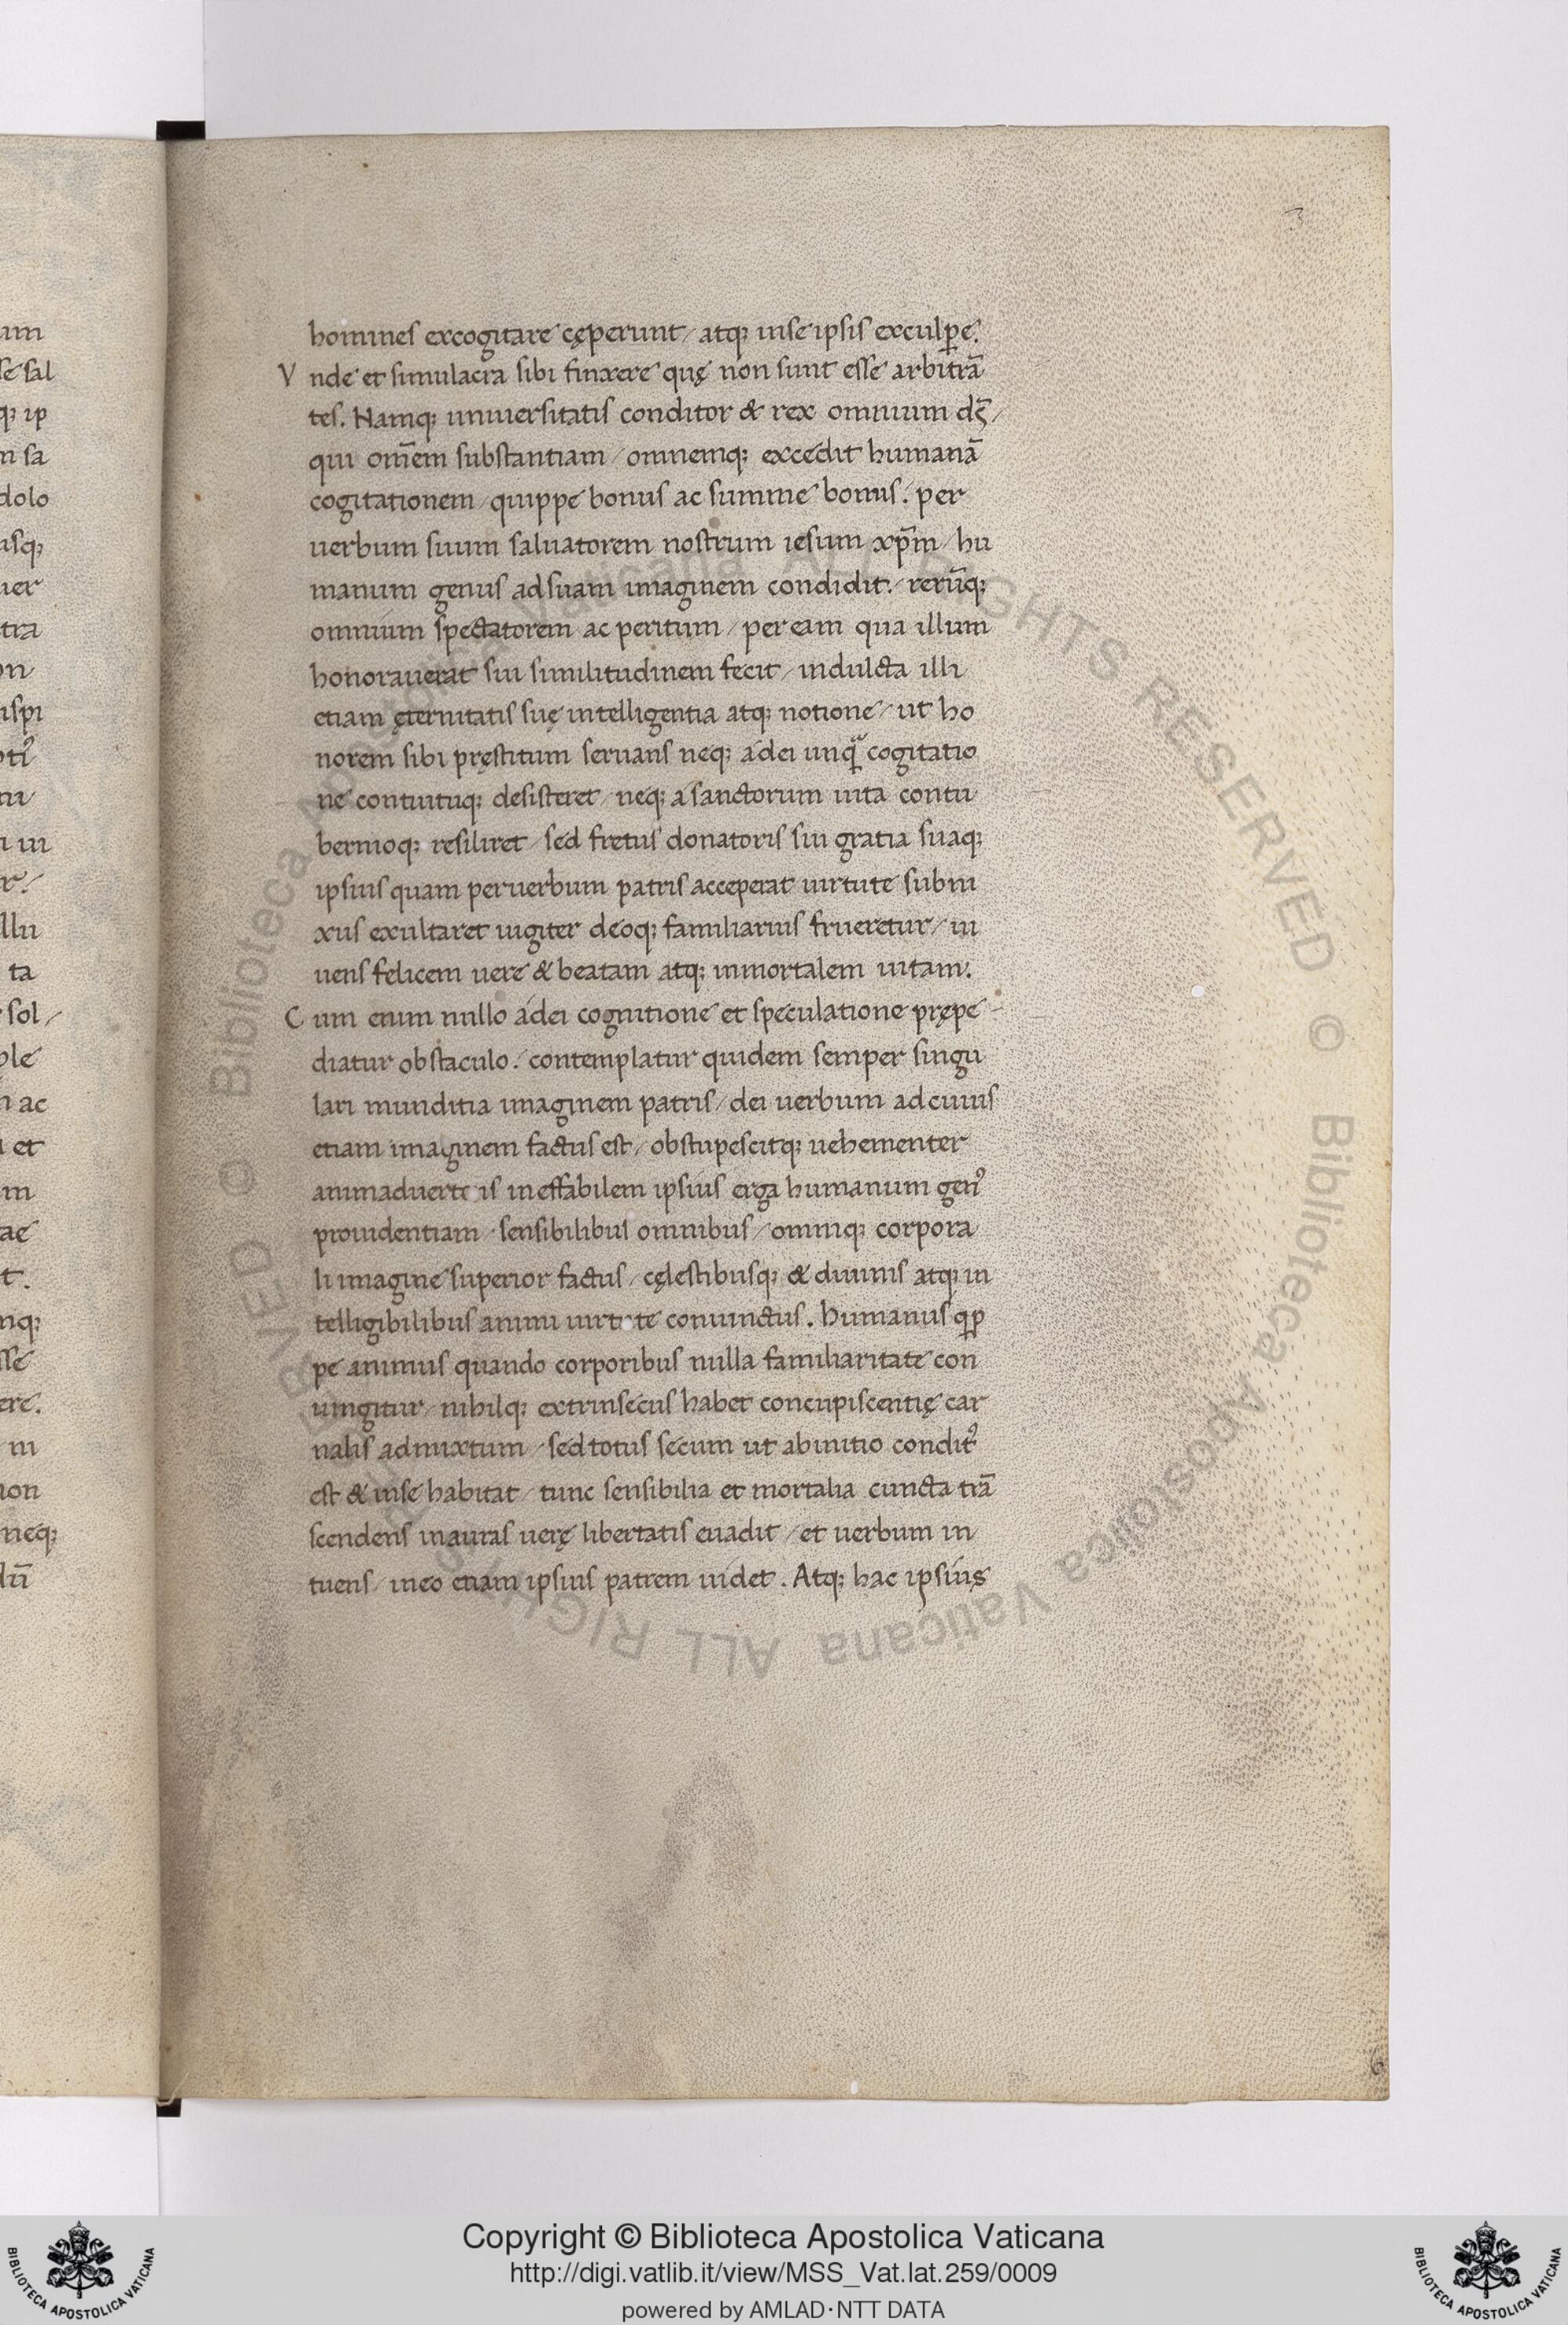 3
homines excogitare cęperunt / atq; inse ipsis exculp̱e.
Vnde et simulacra sibi finxere quę non sunt esse arbitrā
tes. Namq; uniuersitatis conditor & rex omnium ds̄ /
qui om̄em substantiam / omnemq; excedit humanā
cogitationem / quippe bonus ac summe bonus. per
uerbum suum saluatorem nostrum iesum xp̄m / hu
manum genus adsuam imaginem condidit. / rerūq;
omnium spectatorem ac peritum / per eam qua illum
honorauerat sui similitudinem fecit / indulcta illi
etiam ęternitatis suę intelligentia atq; notione / ut ho
norem sibi pręstitum seruans neq; adei unqͣ cogitatio
ne contuituq; desisteret / neq; a sanctorum uita contu
bernioq; resiliret / sed fretus donatoris sui gratia suaq;
ipsius quam peruerbum patris acceperat uirtute subni
xus exultaret iugiter deoq; familiarius frueretur / ui
uens felicem uere & beatam atq; inmortalem uitam.
Cum enim nullo adei cognitione et speculatione prępe-
diatur obstaculo. contemplatur quidem semper singu
lari munditia imaginem patris / dei uerbum adcuius
etiam imaginem factus est / obstupescitq; uehementer
animaduerte is ineffabilem ipsius erga humanum genꝰ
prouidentiam · sensibilibus omnibus / omniq; corpora
li imagine superior factus / cęlestibusq; & diuinis atq; in
telligibilibus animi uirt te coniunctus. humanus qp̱
pe animus quando corporibus nulla familiaritate con
iungitur / nihilq; extrinsecus habet concupiscentię car
nalis admixtum / sed totus secum ut abinitio conditꝰ
est & inse habitat / tunc sensibilia et mortalia cuncta trā
scendens inauras uerę libertatis euadit / et uerbum in
tuens / ineo etiam ipsius patrem uidet. Atq; hac ipsius
6
um
se sal
q; ip
m sa
dolo
usq;
uer
tra
on
ispi
otiꝰ
ni
llu
ta
sol /
ple
ac
et
m
ae
t.
mq;
sse
ere.
ni
non
neq;
Biblioteca Apostolica Vaticana ALL RIGHTS RESERVED © Biblioteca Apostolica Vaticana ALL RIGHTS RESERVED ©
Copyright © Biblioteca Apostolica Vaticana
http://digi.vatlib.it/view/MSS_Vat.lat.259/0009
powered by AMLAD·NTT DATA
BIBLIOTECA APOSTOLICA VATICANA
BIBLIOTECA APOSTOLICA VATICANA